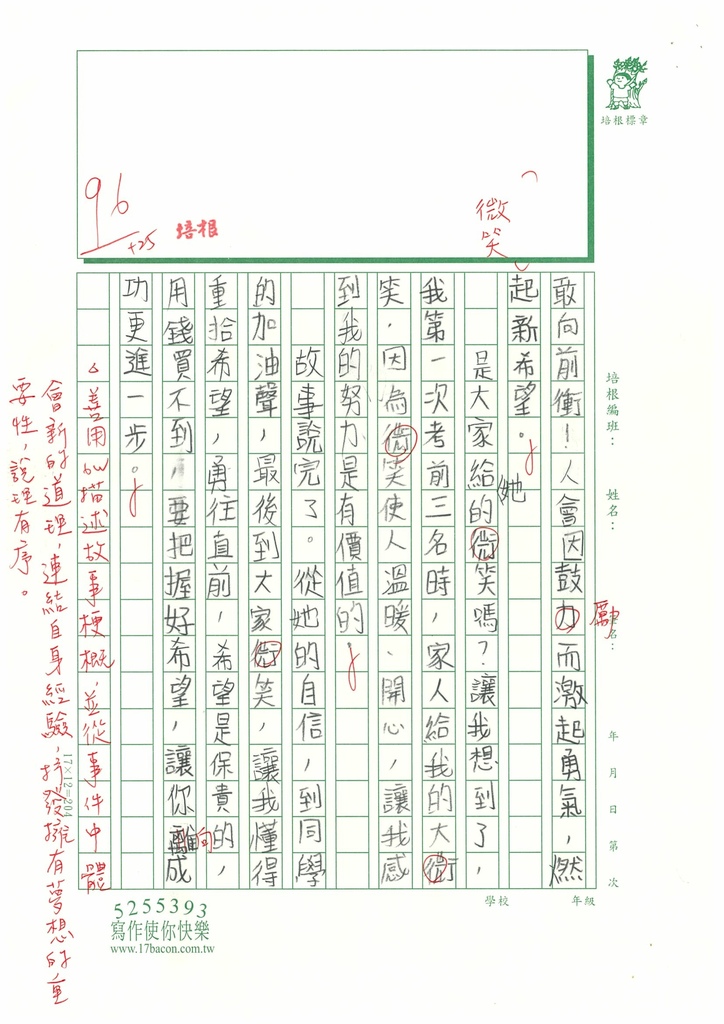 培根標章
96
+25
培根
微笑
敢向前衝！人會因鼓力而激起勇氣，燃
勵
起新希望。
是大家給她的微笑嗎？讓我想到了，
我第一次考前三名時，家人給我的大微
笑，因為微笑使人溫暖、開心，讓我感
到我的努力是有價值的
故事說完了。從她的自信，到同學
的加油聲，最後到大家微笑，讓我懂得
重拾希望，勇往直前，希望是保貴的，
用錢買不到，要把握好希望，讓你離成
向
功更進一步。
△善用以描述故事梗概，並從事件中體
會新的道理，連結自身經驗，抒發擁有夢想的重
要性，說理有序。
培根編班：
姓名：
年 月 日 第 次
學校 年級
17×12=204
5255393
寫作使你快樂
www.17bacon.com.tw